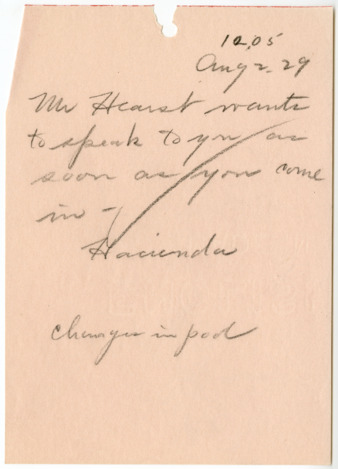 12,05
Aug 2. 29
Mr Hearst wants
to speak to you as
soon as you come
in -
Hacienda
changes in pool